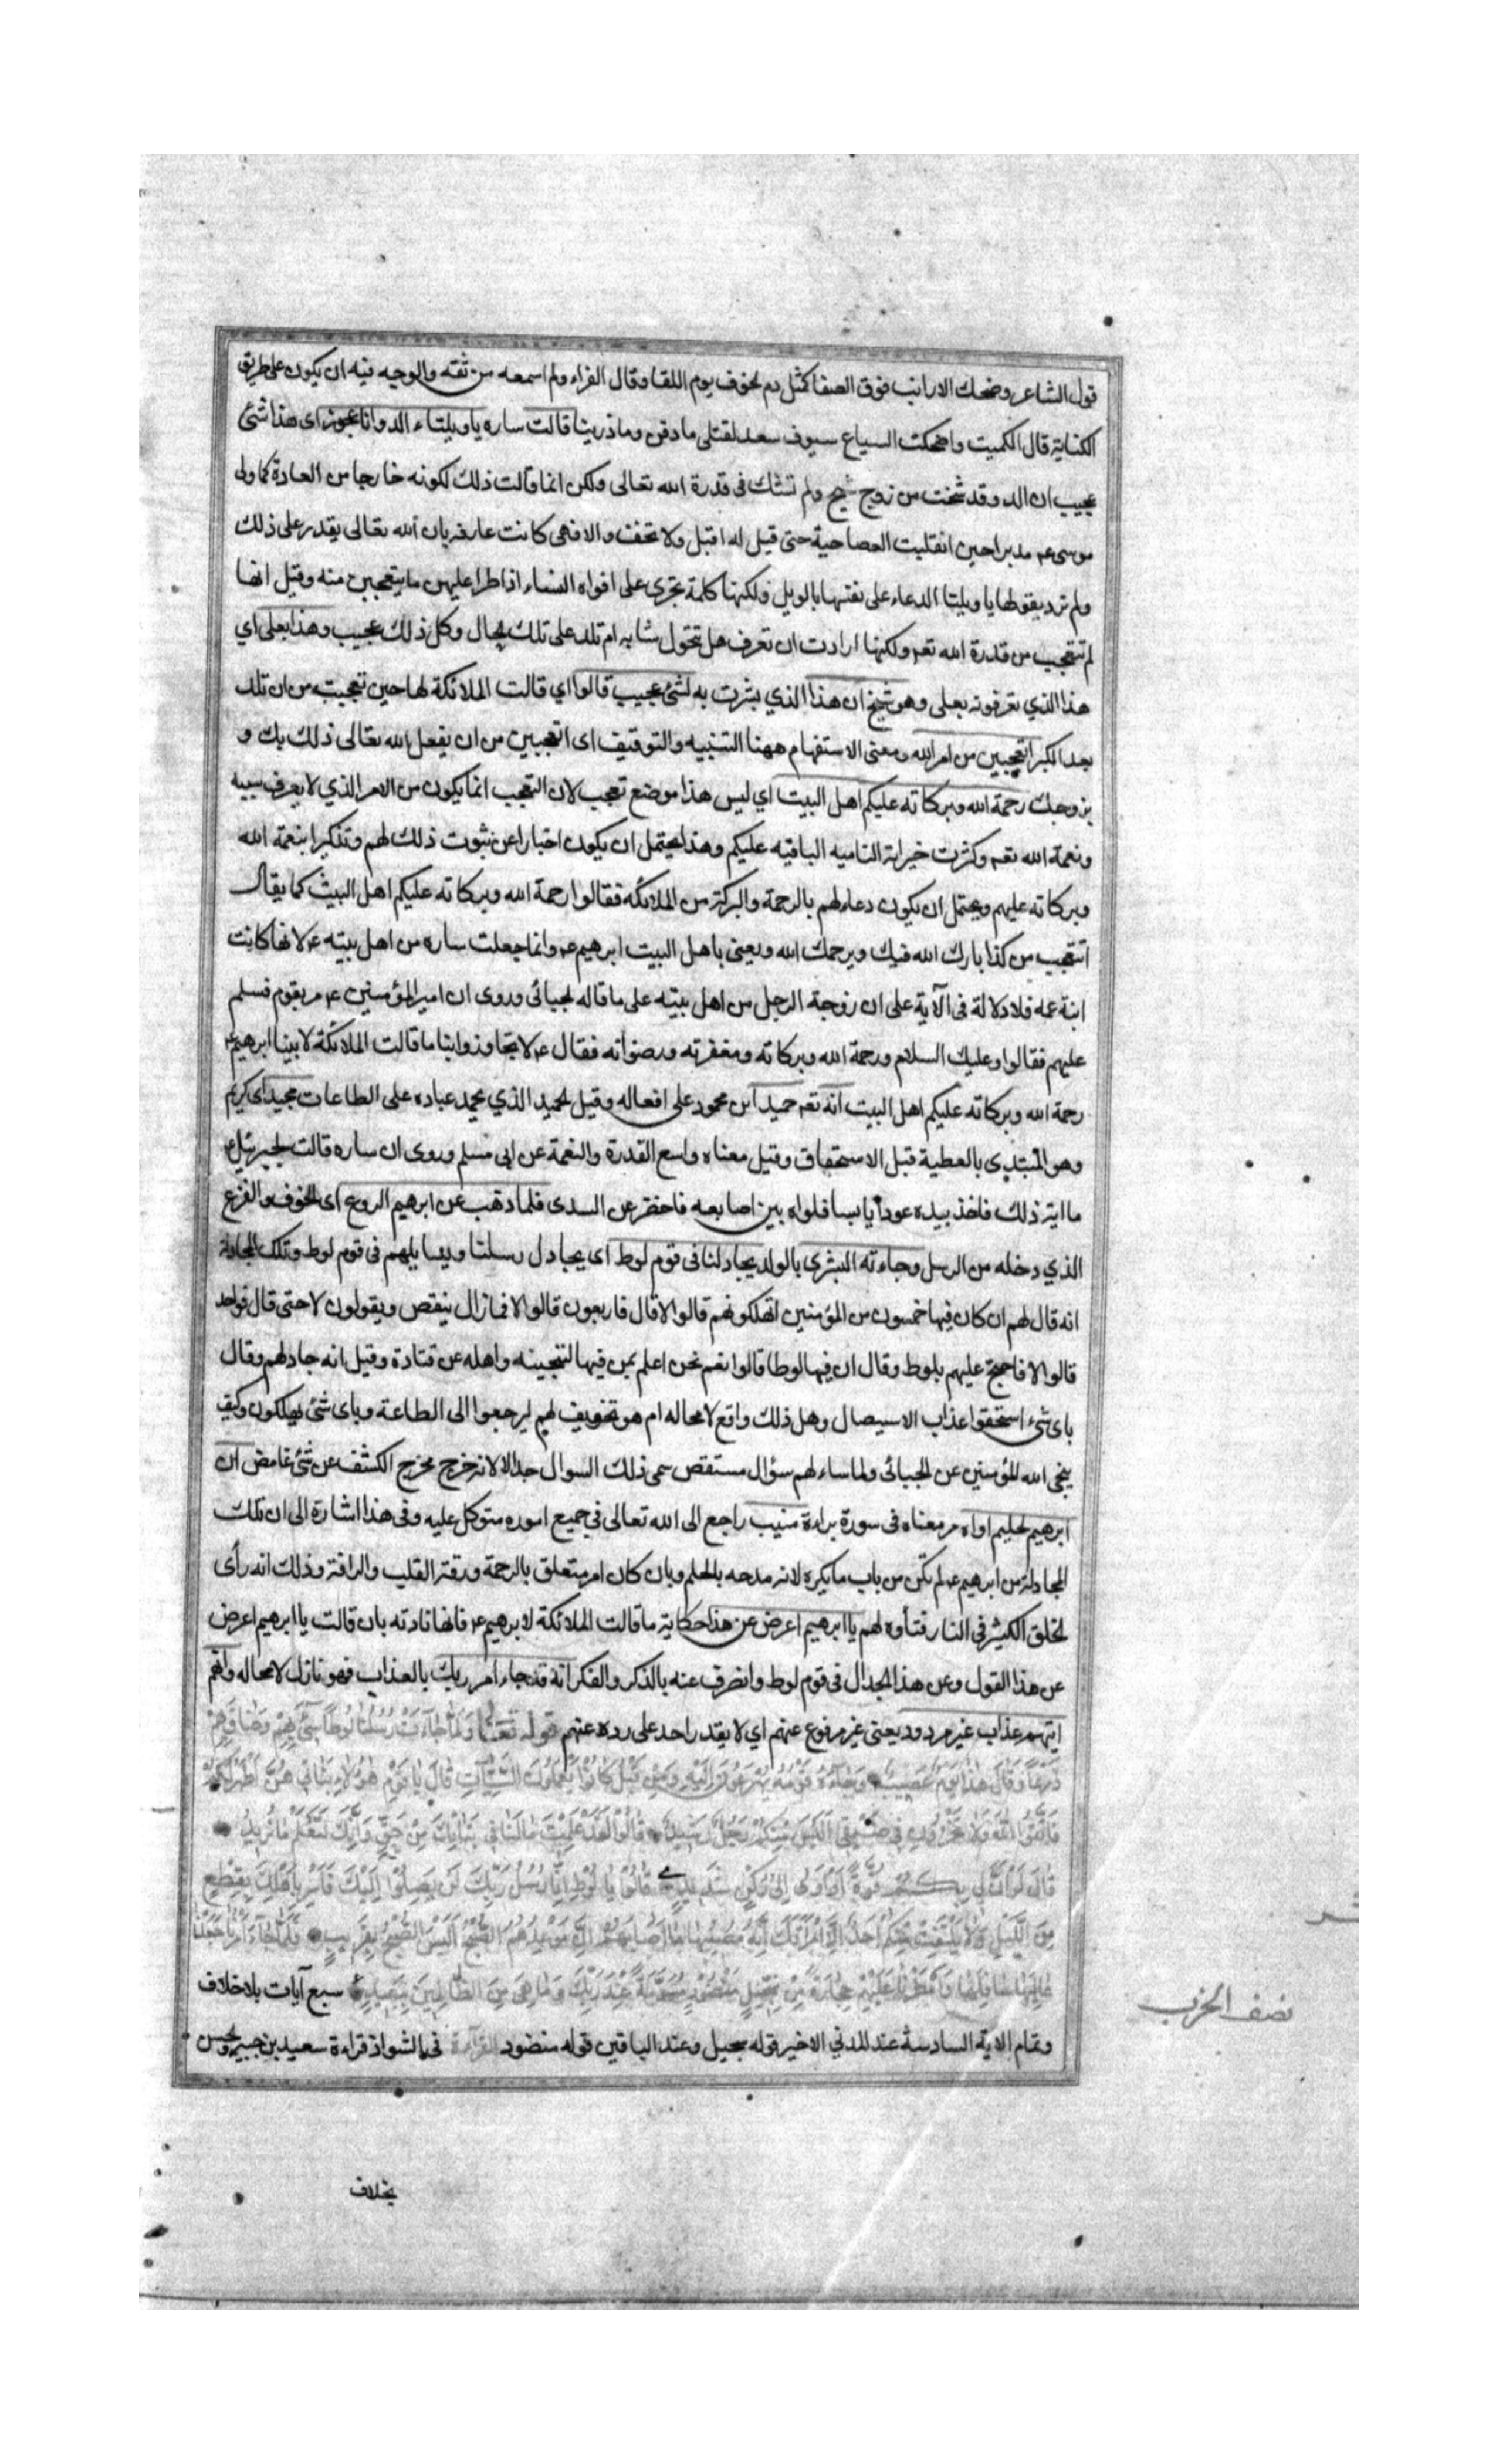 قول الشاعر وضحك الارانب فوق الصفا كمثل دم لجوف يوم اللقا وقال الفراء ولم اسمعه من ثقه والوجه فيه ان يكون على طريق
الكناية قال الكميت واضحكت السباع سيوف سعد لقتلى ما دفن وما ذرينا قالت ساره يا ويلتاء الد وانا عجوز اى هذا شئ
عجيب ان الد وقد شخت من زوج شيخ ولم تشك فى قدرة الله تعالى ولكن انما قالت ذلك لكونه خارجا من العادة كما ولى
موسى عم مدبرا حين انقلبت العصا حية حتى قيل له اقبل ولا تخف والا فهى كانت عارفه بان الله تعالى يقدر على ذلك
ولم ترد بقولها يا ويلتا الدعاء على نفسها بالويل ولكنها كلمة تجرى على افواه النساء اذا طرا عليهن ما يتعجبن منه وقيل انها
لم تتعجب من قدرة الله تعم ولكنها ارادت ان تعرف هل تتحول شابه ام تلد على تلك الحال وكل ذلك عجيب وهذا بعلى اي
هذا الذي تعرفونه بعلى وهو شيخ ان هذا الذي بشرت به لشئ عجيب قالوا اي قالت الملائكة لها حين تعجبت من ان تلد
بعد الكبر اتعجبين من امر الله ومعنى الاستفهام ههنا التنبيه والتوقيف اى اتعجبين من ان يفعل الله تعالى ذلك بك و
بزوجك رحمة الله وبركاته عليكم اهل البيت اي ليس هذا موضع تعجب لان التعجب انما يكون من الامر الذي لا يعرف سببه
ونعمة الله تعم وكثرت خيراته الناميه الباقيه عليكم وهذا يحتمل ان يكون اخبارا عن ثبوت ذلك لهم وتذكيرا بنعمة الله
وبركاته عليهم ويحتمل ان يكون دعاء لهم بالرحمة والبركة من الملائكه فقالوا رحمة الله وبركاته عليكم اهل البيت كما يقال
اتتعجب من كذا بارك الله فيك ويرحمك الله ويعنى باهل البيت ابرهيم عم وانما جعلت ساره من اهل بيته عم لانها كانت
ابنة عمه فلا دلالة فى الآية على ان زوجة الرجل من اهل بيته على ما قاله الجبائى وروى ان امير المؤمنين عم مر بقوم فسلم
عليهم فقالوا وعليك السلام ورحمة الله وبركاته ومغفرته ورضوانه فقال عم لا تجاوزوا بنا ما قالت الملائكة لابينا ابرهيم عم
رحمة الله وبركاته عليكم اهل البيت انه تعم حميد اى محمود على افعاله وقيل الحميد الذي يحمد عباده على الطاعات مجيد اى كريم
وهو المبتدى بالعطية قبل الاستحقاق وقيل معناه واسع القدرة والنعمة عن ابى مسلم وروى ان ساره قالت لجبرئيل عم
ما اية ذلك فاخذ بيده عودا يابسا فلواه بين اصابعه فاخضر عن السدى فلما ذهب عن ابرهيم الروع اى الخوف والفزع
الذي دخله من الرسل وجاءته البشرى بالولد يجادلنا فى قوم لوط اى يجادل رسلنا ويسايلهم فى قوم لوط وتلك المجادلة
انه قال لهم ان كان فيها خمسون من المؤمنين اتهلكونهم قالوا لا قال فاربعون قالوا لا فما زال ينقص ويقولون لا حتى قال فواحد
قالوا لا فاحتج عليهم بلوط وقال ان فيها لوطا قالوا نعم نحن اعلم بمن فيها لننجينه واهله عن قتادة وقيل انه جادلهم وقال
باى شئ استحقوا عذاب الاستيصال وهل ذلك واقع لا محاله ام هو تخويف لهم ليرجعوا الى الطاعة وباى شئ يهلكون وكيف
ينجى الله المؤمنين عن الجبائى ولما ساءلهم سؤال مستقص سمى ذلك السوال جدالا لانه خرج مخرج الكشف عن شئ غامض ان
ابرهيم لحليم اواه مر معناه فى سورة براءة منيب راجع الى الله تعالى فى جميع اموره متوكل عليه وفى هذا اشارة الى ان تلك
المجادلة من ابرهيم عم لم تكن من باب ما يكره لانه مدحه بالحلم وبان كان امر متعلق بالرحمة ورقة القلب والرافة وذلك انه رأى
الخلق الكثير فى النار فتأوه لهم يا ابرهيم اعرض عن هذا حكاية ما قالت الملائكة لابرهيم عم فانها نادته بان قالت يا ابرهيم اعرض
عن هذا القول وعن هذا الجدال فى قوم لوط وانصرف عنه بالذكر والفكر انه قد جاء امر ربك بالعذاب فهو نازل لا محاله وانهم
اتيهم عذاب غير مردود يعنى غير مرفوع عنهم اي لا يقدر احد على رده عنهم قوله تعالى وَلَمَّا جَاءَتْ رُسُلُنَا لُوطًا سِيءَ بِهِمْ وَضَاقَ بِهِمْ
ذَرْعًا وَقَالَ هٰذَا يَوْمٌ عَصِيبٌ وَجَاءَهُ قَوْمُهُ يُهْرَعُونَ اِلَيْهِ وَمِنْ قَبْلُ كَانُوا يَعْمَلُونَ السَّيِّئَاتِ قَالَ يَا قَوْمِ هٰؤُلَاءِ بَنَاتِي هُنَّ اَطْهَرُ لَكُمْ
فَاتَّقُوا اللّٰهَ وَلَا تُخْزُونِ فِي ضَيْفِي اَلَيْسَ مِنْكُمْ رَجُلٌ رَشِيدٌ قَالُوا لَقَدْ عَلِمْتَ مَا لَنَا فِي بَنَاتِكَ مِنْ حَقٍّ وَاِنَّكَ لَتَعْلَمُ مَا نُرِيدُ
قَالَ لَوْ اَنَّ لِي بِكُمْ قُوَّةً اَوْ آوِي اِلٰى رُكْنٍ شَدِيدٍ قَالُوا يَا لُوطُ اِنَّا رُسُلُ رَبِّكَ لَنْ يَصِلُوا اِلَيْكَ فَاَسْرِ بِاَهْلِكَ بِقِطْعٍ
مِنَ اللَّيْلِ وَلَا يَلْتَفِتْ مِنْكُمْ اَحَدٌ اِلَّا امْرَاَتَكَ اِنَّهُ مُصِيبُهَا مَا اَصَابَهُمْ اِنَّ مَوْعِدَهُمُ الصُّبْحُ اَلَيْسَ الصُّبْحُ بِقَرِيبٍ فَلَمَّا جَاءَ اَمْرُنَا جَعَلْنَا
عَالِيَهَا سَافِلَهَا وَاَمْطَرْنَا عَلَيْهَا حِجَارَةً مِنْ سِجِّيلٍ مَنْضُودٍ مُسَوَّمَةً عِنْدَ رَبِّكَ وَمَا هِيَ مِنَ الظَّالِمِينَ بِبَعِيدٍ سبع آيات بلا خلاف
وتمام الاية السادسة عند المدني الاخير قوله سجيل وعند الباقين قوله منضود القرآءة فى الشواذ قراءة سعيد بن جبير والحسن
نصف الحزب
بخلاف